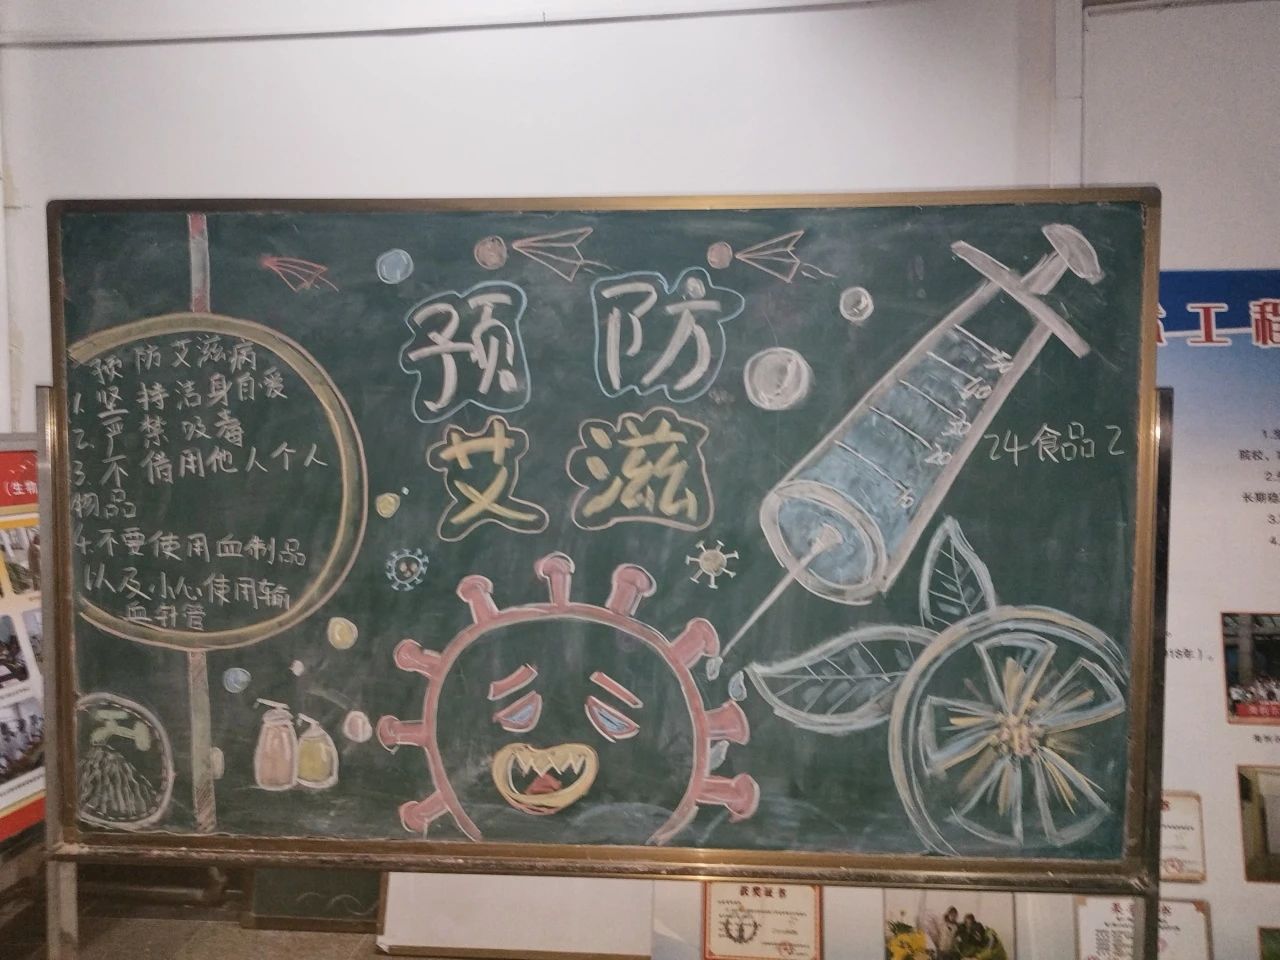 预防
艾滋
预防艾滋病
1.坚持洁身自爱
2.严禁吸毒
3.不借用他人个人
物品
4.不要使用血制品
以及小心使用输
血针管
24食品2
工程
院校、
长期稳
（生物
获奖证书